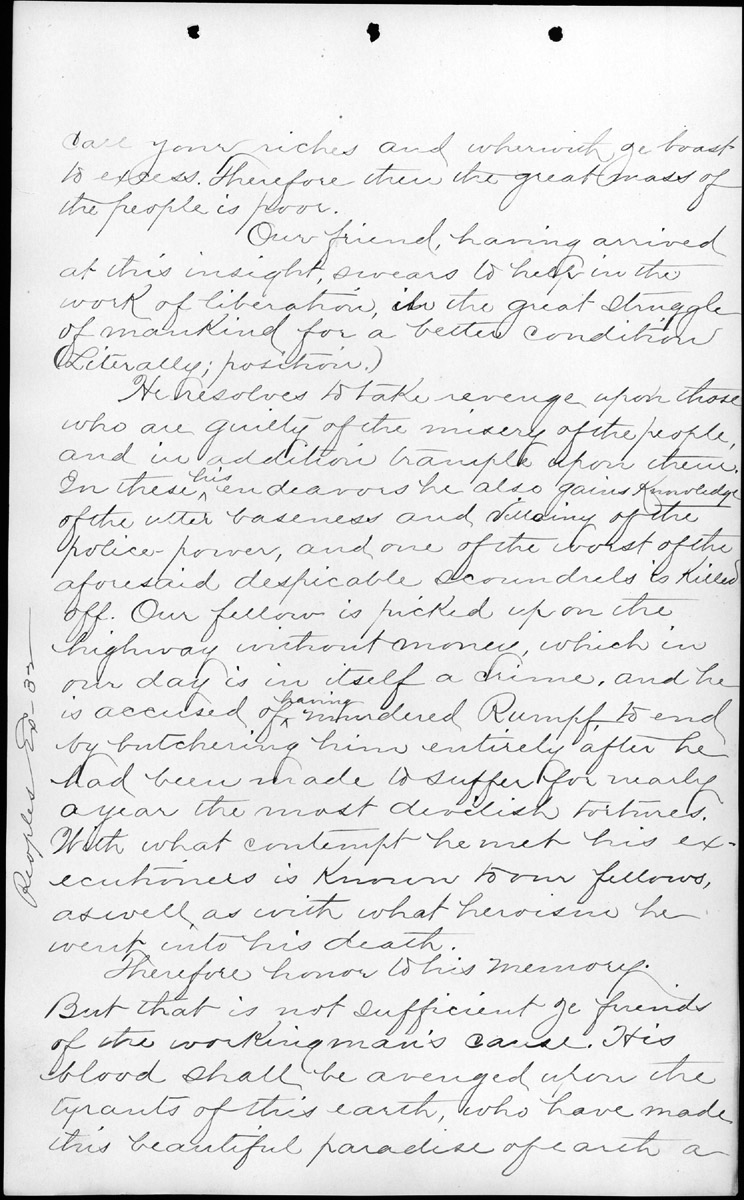 call your riches and wherwith ye boast
to excess. Therefore then the great mass of
the people is poor.
Our friend, having arrived
at this insight, swears to help in the
work of liberation, in the great struggle
of mankind for a better condition
(Literally; position.)
He resolves to take revenge upon those
who are guilty of the misery of the people,
and in addition trample upon them.
In these his endeavors he also gains Knowledge
of the utter baseness and villainy of the
police-power, and one of the worst of the
aforesaid despicable scoundrels is Killed
off. Our fellow is picked up on the
highway without money, which in
our day is in itself a crime, and he
is accused of having murdered Rumpf, to end
by butchering him entirely after he
had been made to suffer for nearly
a year the most devilish tortures.
With what contempt he met his ex-
ecutioners is Known to our fellows,
as well as with what heroism he
went into his death.
Therefore honor to his memory.
But that is not sufficient ye friends
of the workingman's cause. His
blood shall be avenged upon the
tyrants of this earth, who have made
this beautiful paradise of earth a
Peoples Ex-